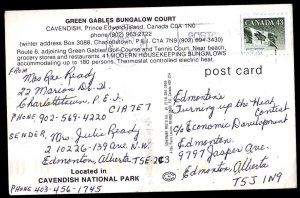 GREEN GABLES BUNGALOW COURT
CAVENDISH, Prince Edward Island, Canada C0A 1N0
phone (902) 963-2722
(winter address Box 3088, Charlottetown, P.E.I. C1A 7N9 (902) 894-3430)
Route 6, adjoining Green Gables Golf Course and Tennis Court. Near beach,
grocery stores and restaurants 41 MODERN HOUSEKEEPING BUNGALOWS
accommodating up to 180 persons. Thermostat controlled electric
heating.
CANADA 43
post card
FROM
Mrs Ready
22 Marion Dr.
Charlottetown, P.E.I.
C1A 7E7
PHONE 902-569-4220
SENDER, Mrs. Julie Ready
210226-139 Ave. N.W.
Edmonton, Alberta T5E-2C3
Located in
CAVENDISH NATIONAL PARK
PHONE 403-456-1745
Edmonton's
Turning up the Heat
Contest
c/o Economic Development
Edmonton.
9797 Jasper Ave.
Edmonton, Alberta
T5J 1N9